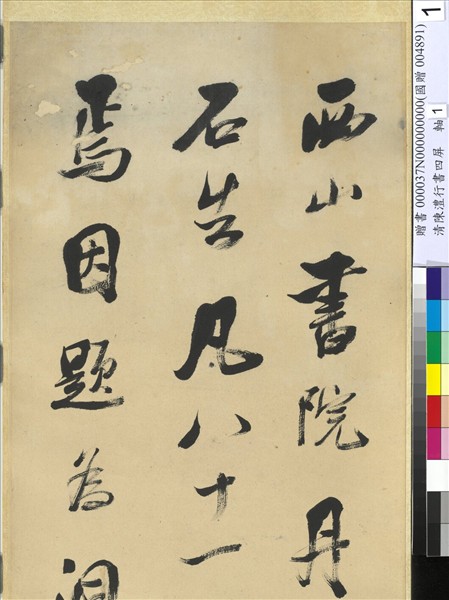 西山書院丹
石告凡八十一
焉因題為
贈書 000037N000000000(國贈 004891)
清陳澧行書四屏 軸 1
1